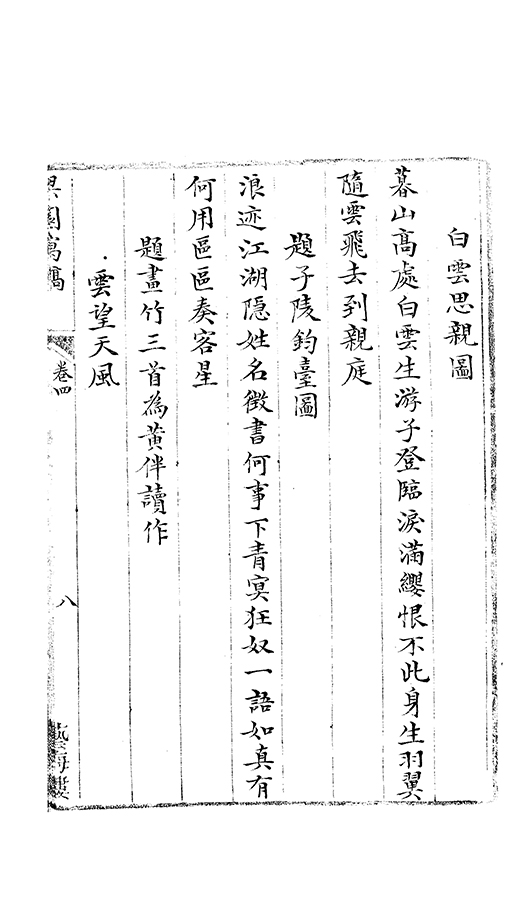 白雲思親圖
暮山高處白雲生游子登臨淚滿纓恨不此身生羽翼
隨雲飛去到親庭
題子陵釣臺圖
浪迹江湖隠姓名徴書何事下青冥狂奴一語如真有
何用區區奏客星
題畫竹三首為黃伴讀作
雲望天風
園寓稿
卷四
八